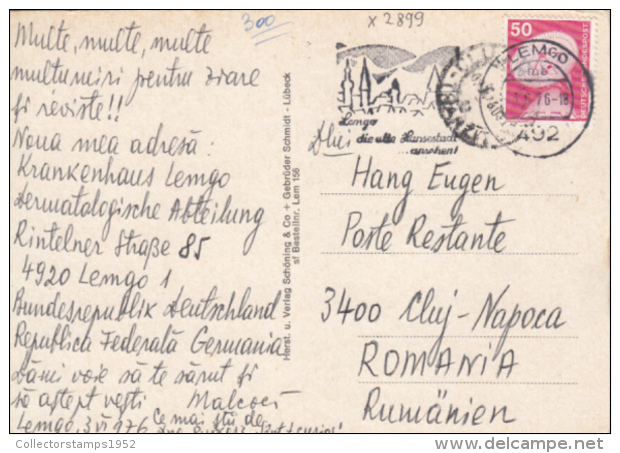 300
x 2899
Multe, multe, multe
multumiri pentru ziare
și reviste!!
Noua mea adresă:
Krankenhaus Lemgo
Dermatologische Abteilung
Rintelner Straße 85
4920 Lemgo 1
Bundesrepublik Deutschland
Republica Federală Germania
Dă-mi voie să te sărut și
să aștept vești Malcoci
Lemgo, 3 VI 976 Ce mai știi de
Herst. u. Verlag Schöning & Co + Gebrüder Schmidt - Lübeck
sf Bestellnr. Lem 156
50
DEUTSCHE BUNDESPOST
LEMGO
492
Lemgo
die alte Hansestadt
ansehen!
Dlui
Hang Eugen
Poste Restante
3400 Cluj-Napoca
ROMANIA
Rumänien
Collectorstamps1952
www.delcampe.net